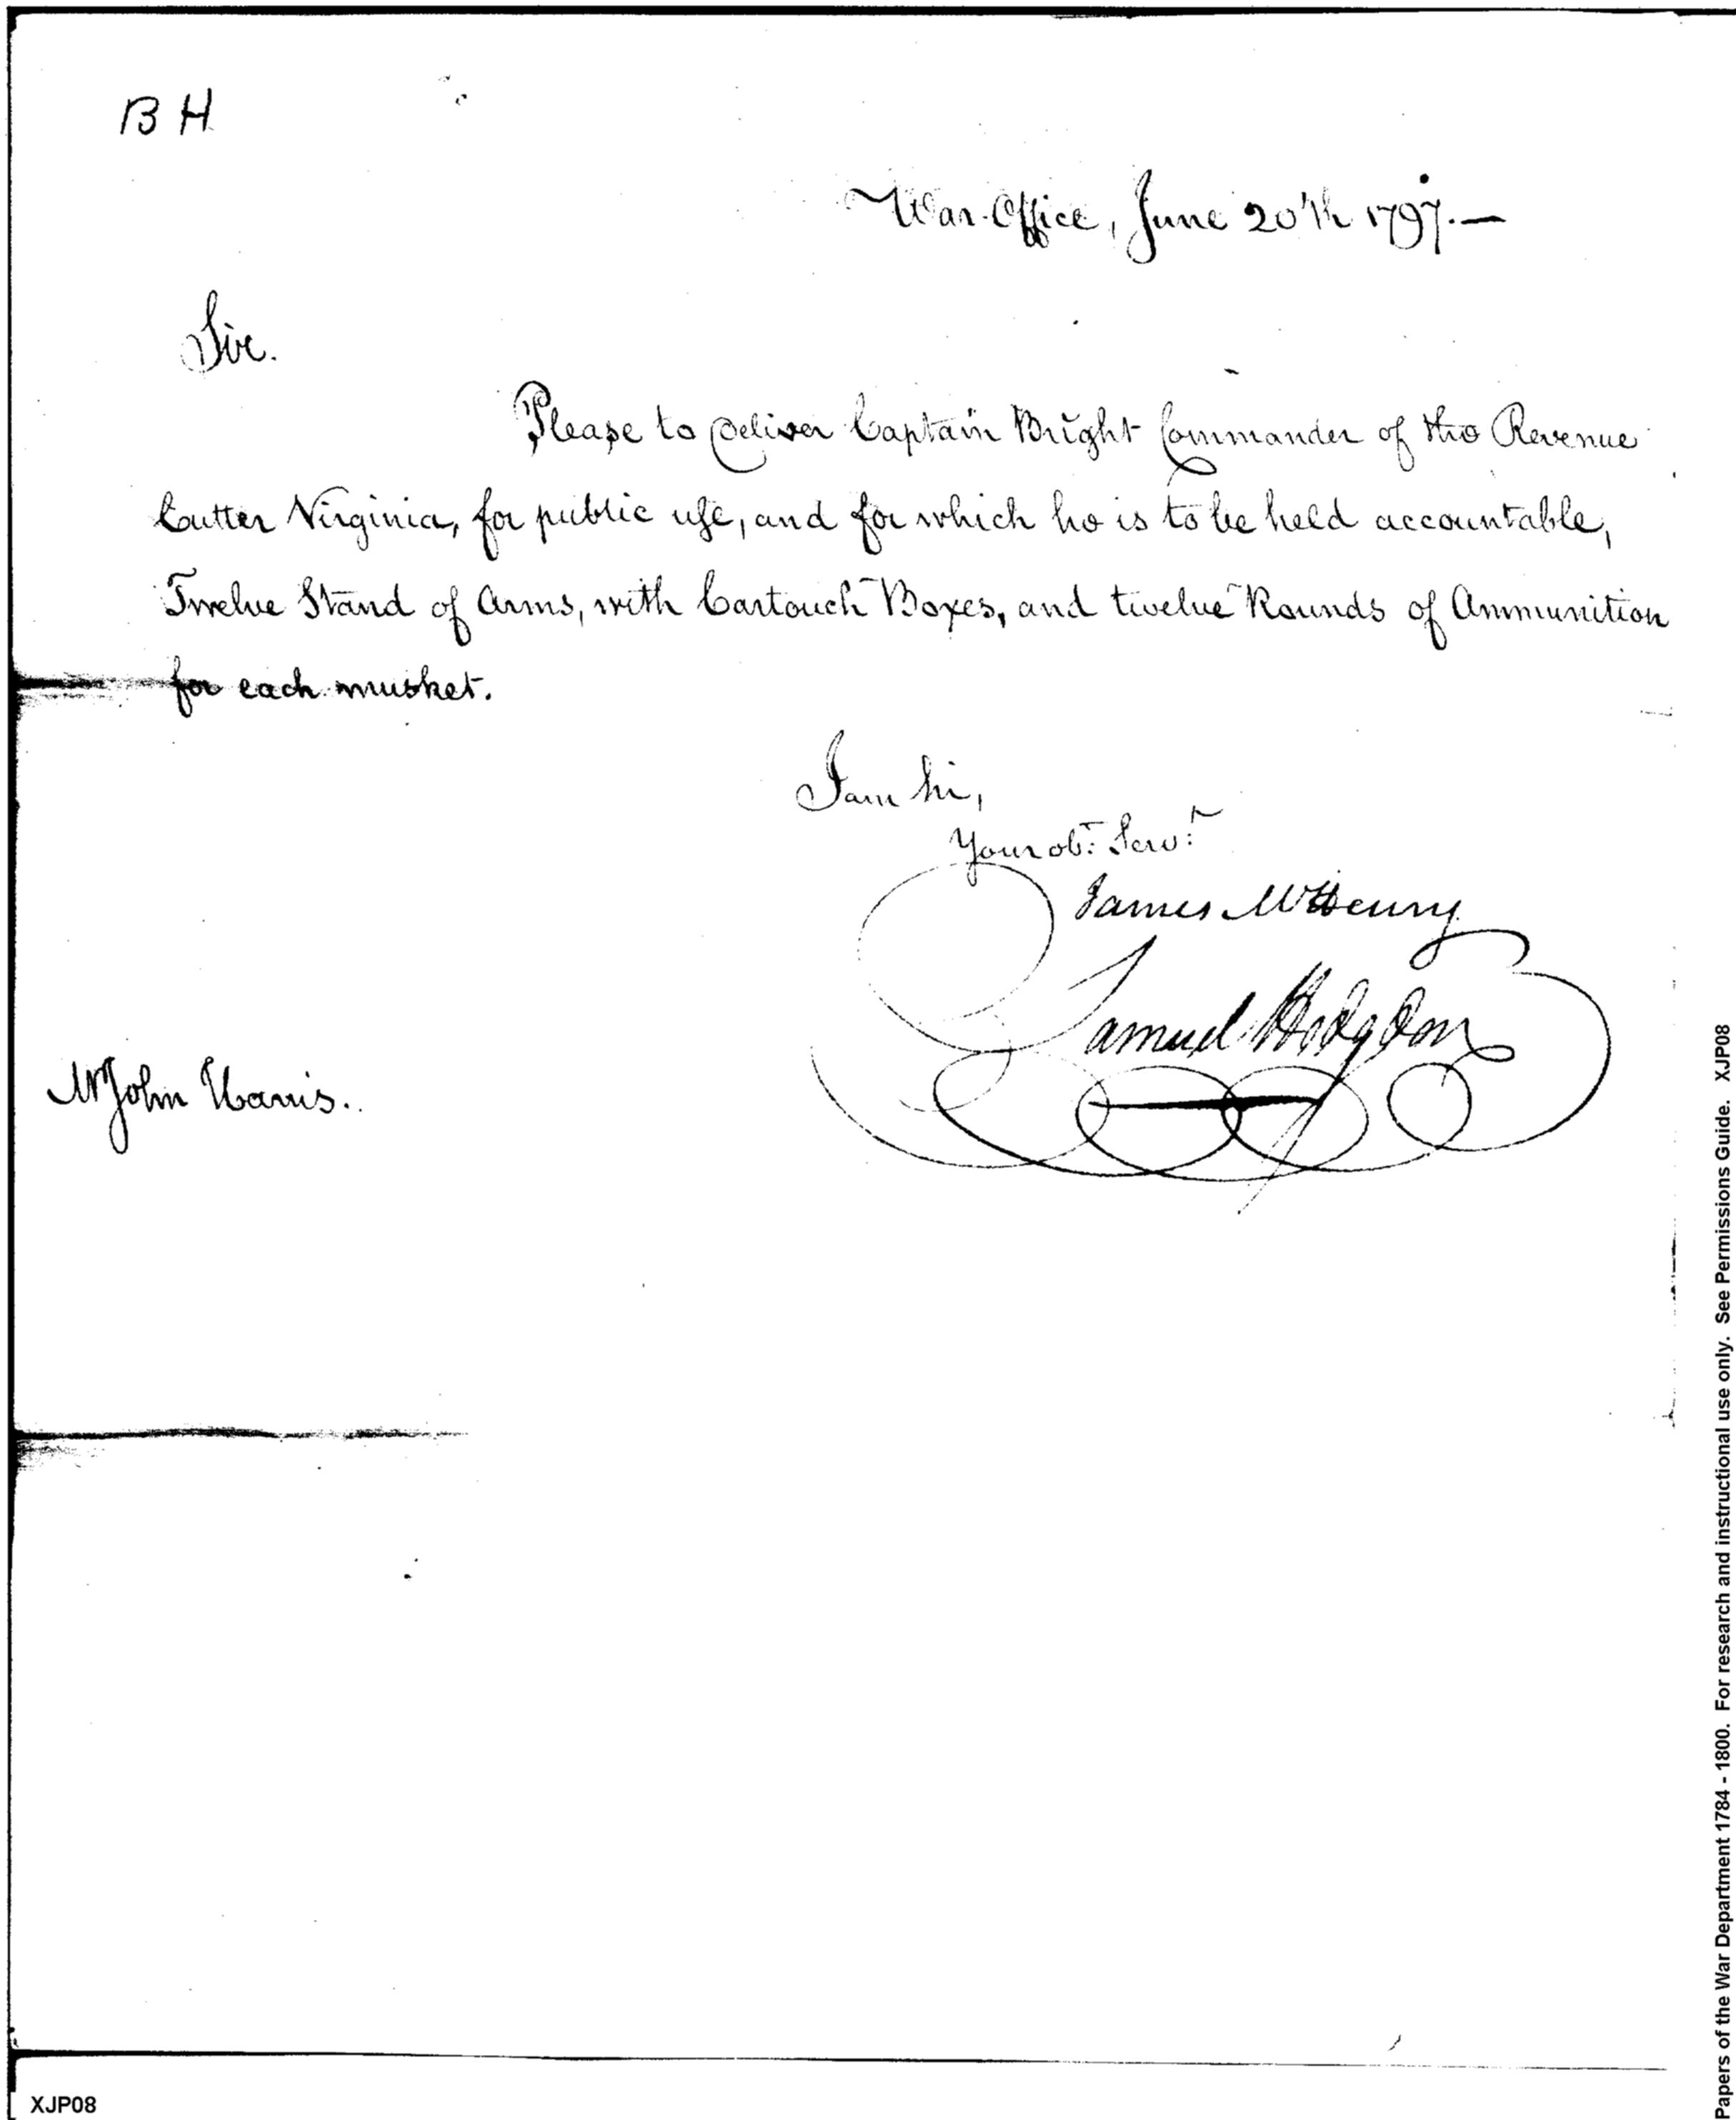 BH
War Office, June 20th 1797.—
Sir.
Please to deliver Captain Bright Commander of the Revenue
Cutter Virginia, for public use, and for which he is to be held accountable,
Twelve Stand of Arms, with Cartouch Boxes, and twelve Rounds of Ammunition
for each musket.
I am Sir,
Your obt: Servt:
James McHenry
Samuel Hodgdon
Mr John Harris.
XJP08
Papers of the War Department 1784 - 1800. For research and instructional use only. See Permissions Guide. XJP08